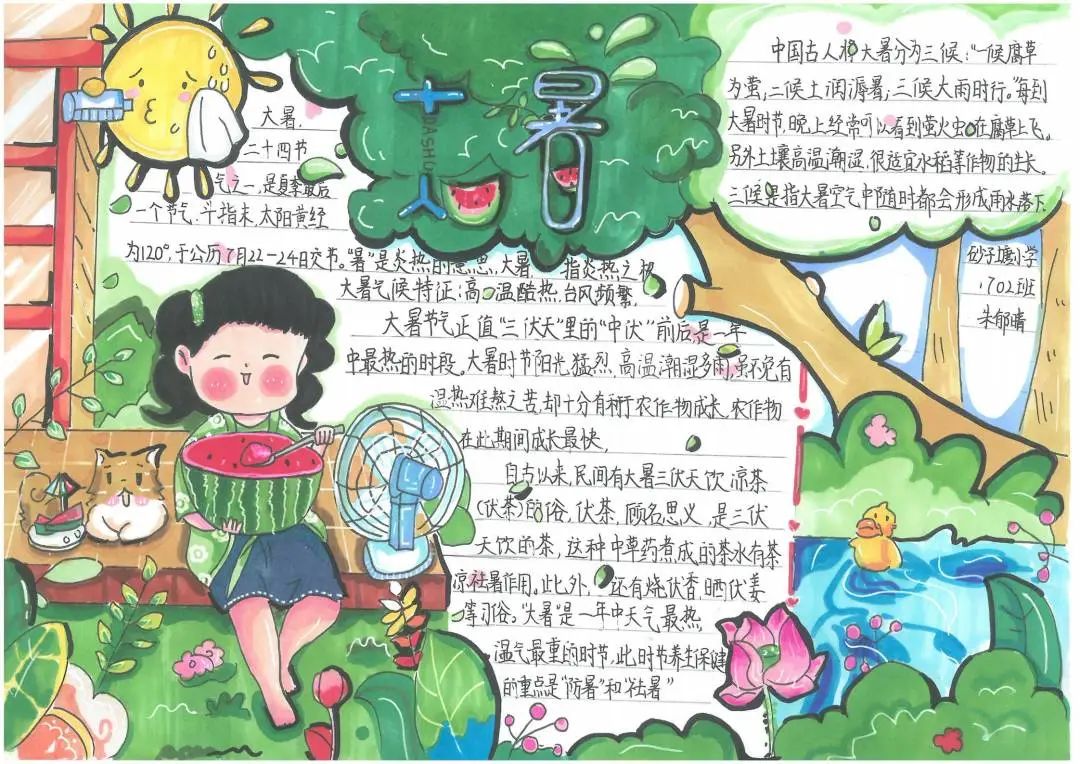 大暑
DASHU
大暑,
二十四节
气之一,是夏季最后
一个节气,斗指未,太阳黄经
为120°,于公历7月22-24日交节。"暑"是炎热的意思,大暑,指炎热之极
大暑气候特征:高温酷热,台风频繁,
大暑节气正值"三伏天"里的"中伏"前后是一年
中最热的时段。大暑时节阳光猛烈,高温潮湿多雨,虽不免有
湿热难熬之苦,却十分有利于农作物成长,农作物
在此期间成长最快,
自古以来,民间有大暑三伏天饮凉茶
(伏茶)的俗,伏茶,顾名思义,是三伏
天饮的茶,这种中草药煮成的茶水有茶
凉祛暑作用。此外,还有烧伏香,晒伏姜
等习俗。"大暑"是一年中天气最热
温气最重的时节,此时节养生保健
的重点是"防暑"和"祛暑"
中国古人将大暑分为三候:"一候腐草
为萤,二候土润溽暑;三候大雨时行。"每到
大暑时节,晚上经常可以看到萤火虫在腐草上飞。
另外土壤高温潮湿,很适宜水稻等作物的生长。
三候是指大暑空气中随时都会形成雨水落下.
砂子塘小学
1702班
朱郁晴